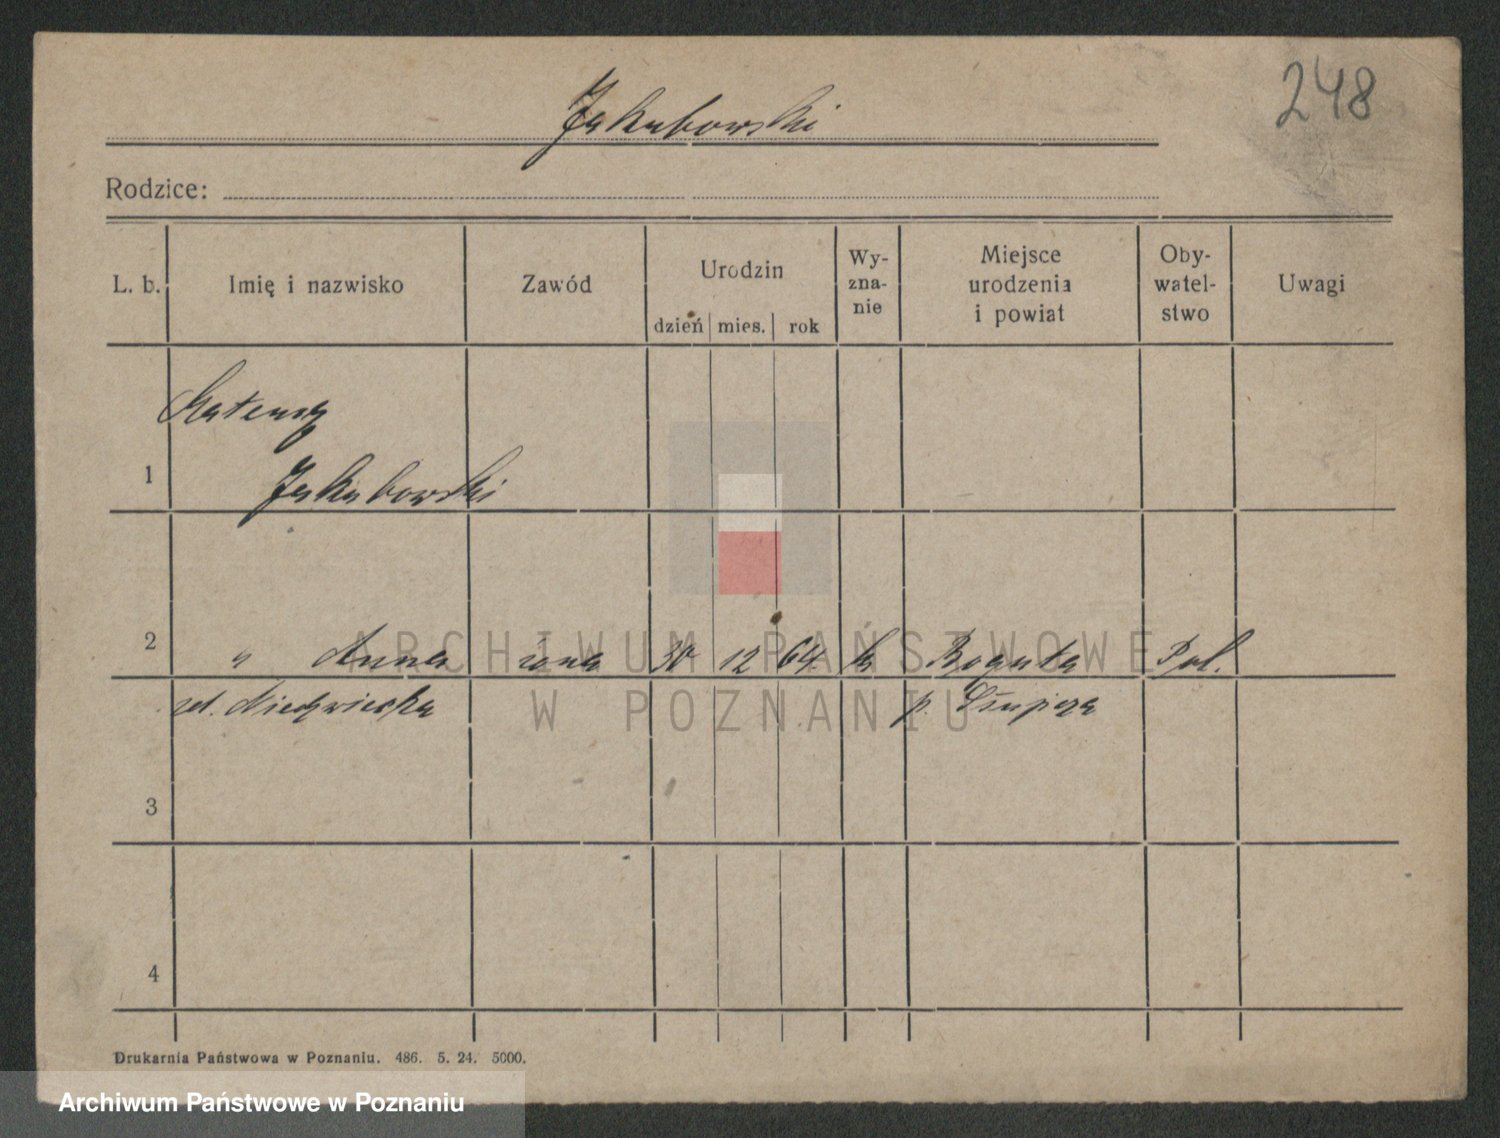 248
Jakubowski
Rodzice:
L. b. Imię i nazwisko Zawód Urodzin dzień mies. rok Wy-zna-nie Miejsce urodzenia i powiat Oby-watel-stwo Uwagi
Mateusz
1 Jakubowski
2 " Anna żona 30 12 64 k Boguta Pol.
p. Słupca
3
4
Drukarnia Państwowa w Poznaniu. 486. 5. 24. 5000.
ARCHIWUM PAŃSTWOWE
W POZNANIU
Archiwum Państwowe w Poznaniu